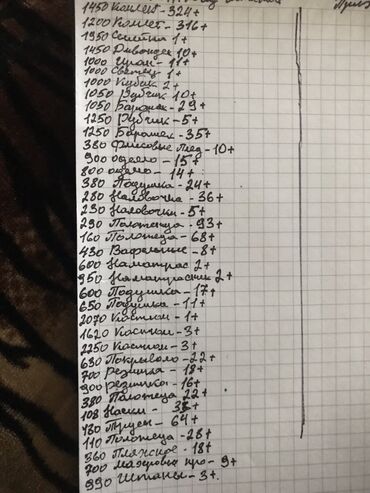 1450 Комплект - 324+
1200 Комплет - 316+
1950 Сатин 1+
1450 Дивандек 10+
1000 11+
1000 1+
1000 Кубик 2+
1050 Рубчик 10+
1050 Барашек - 29+
1250 Рубчик - 5+
1250 Барашек - 35+
380 Флисовые плед - 10+
900 одеяло - 15+
800 одеяло - 14+
380 Подушка - 24+
280 Наловочка - 36+
230 Наловочки - 5+
290 Полотенца - 93+
160 Полотеца - 68+
430 Вафельные - 8+
600 Наматрас 2+
950 Наматрасник 2+
600 Подушка - 17+
650 Подушка - 11+
2070 Костюм - 1+
1620 Костюм - 3+
2250 Костюм - 3+
630 Покрывало - 22+
700 резинка - 18+
900 резинка - 16+
380 Полотеца 22+
108 Наски - 33+
180 Трусы - 64+
110 Полотеца - 28+
360 Пляжное - 18+
700 махровые про - 9+
990 Штаны - 3+